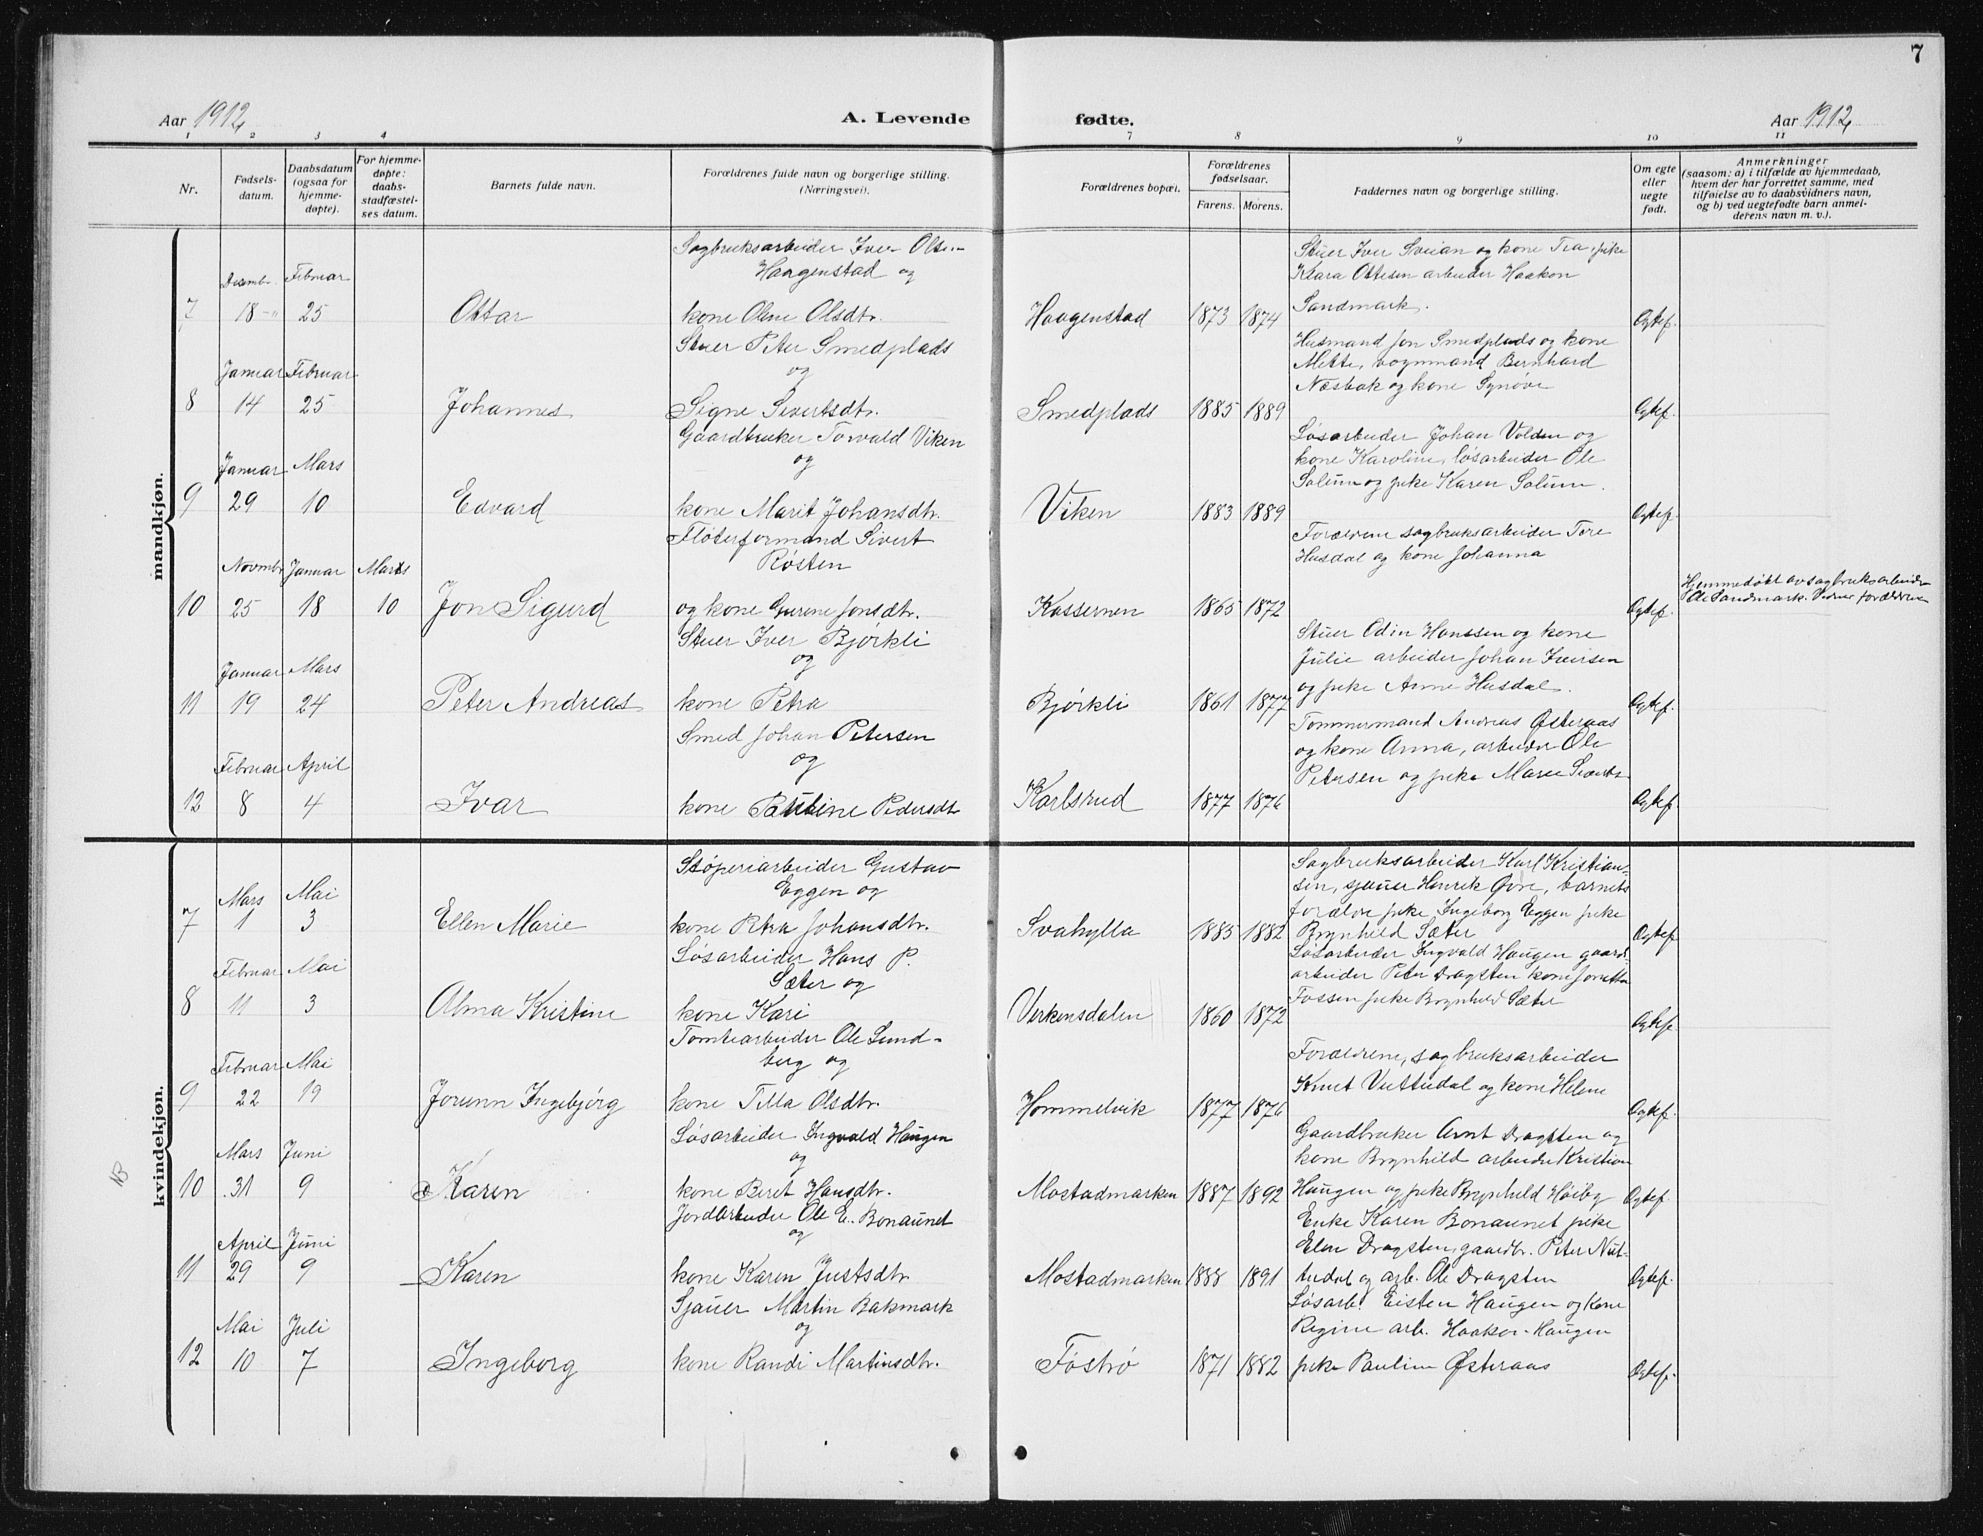 7
Aar 1912
A. Levende
fødte.
Aar 1912
1 2 3 4
7 8 9 10 11
Nr.
Fødsels-
datum.
Daabsdatum
(ogsaa for
hjemme-
døpte).
For hjemme-
døpte:
daabs-
stadfæstel-
ses datum.
Barnets fulde navn.
Forældrenes fulde navn og borgerlige stilling.
(Næringsvei).
Forældrenes bopæl.
Forældrenes
fødselsaar.
Farens. Morens.
Faddernes navn og borgerlige stilling.
Om egte
eller
uegte
født.
Anmerkninger
(saasom: a) i tilfælde av hjemmedaab,
hvem der har forrettet samme, med
tilføielse av to daabsvidners navn,
og b) ved uegtefødte barn anmel-
derens navn m. v.).
mandkjøn.
Sagbruksarbeider Iver Olsen
Haagenstad og
Stuer Iver Sveian og kone Tea, pike
Klara Ottesen arbeider Haakon
Sandmark.
Desembr. Februar
7 18 25 Ottar kone Olene Olsdtr. Haagenstad 1873 1874 Egtef.
Stuer Peter Smedplads
og
Husmand Jon Smedplads og kone
Mette, vognmand Bernhard
Næsbak og kone Synøve
Januar Februar
8 14 25 Johannes Signe Sivertsdtr. Smedplads 1885 1889 Egtef.
Gaardbruker Torvald Viken
og
Løsarbeider Johan Volden og
kone Karoline, løsarbeider Ole
Solum og pike Karen Solum.
Januar Mars
9 29 10 Edvard kone Marit Johansdtr. Viken 1883 1889 Egtef.
Fløterformand Sivert
Røsten
Forældrene sagbruksarbeider Tore
Husdal og kone Johanna
Novmbr Januar Marts
10 25 18 10 Jon Sigurd og kone Gurine Jonsdtr. Kassernen 1865 1872 Egtef.
Hjemmedøbt av sagbruksarbeider
Ole Sandmark. Vidner forældrene
Stuer Iver Bjørkli
og
Stuer Odin Hanssen og kone
Julie arbeider Johan Iversen
og pike Anne Husdal.
Januar Mars
11 19 24 Peter Andreas kone Petra Bjørkli 1861 1877 Egtef.
Smed Johan Petersen
og
Tømmermand Andreas Østeraas
og kone Anna, arbeider Ole
Petersen og pike Maree
Februar April
12 8 4 Ivar kone Pauline Pedersdt Karlsrud 1877 1876 Egtef.
kvindekjøn.
Støperiarbeider Gustav
Eggen og
Sagbruksarbeider Karl Kristian-
sen, sjauer Henrik Øvre, barnets
forældre pike Ingeborg Eggen pike
Brynhild Sæter
Mars Mai
7 1 3 Ellen Marie kone Petra Johansdtr. Svahylla 1885 1882 Egtef.
Løsarbeider Hans P.
Sæter og
Løsarbeider Ingvald Haugen gaard-
arbeider Peter Dragsten kone Jonetta
Fossen pike Brynhild Sæter
Februar Mai
8 11 3 Alma Kristine kone Kari Verkensdalen 1860 1872 Egtef.
Tomtearbeider Ole Lund-
berg og
Forældrene, sagbruksarbeider
Knut Vuttudal og kone Helene
Februar Mai
9 22 19 Jorunn Ingebjørg kone Tilla Olsdtr. Hommelvik 1877 1876 Egtef.
Løsarbeider Ingvald Haugen
og
Gaardbruker Arnt Dragsten og
kone Brynhild arbeider Kristian
Haugen og pike Brynhild Høiby
Mars Juni
NB
10 31 9 Karen kone Beret Hansdtr. Mostadmarken 1887 1892 Egtef.
Jordarbeider Ole E. Bonaunet
og
Enke Karen Bonaunet pike
Elen Dragsten, gaardbr. Peter Nut-
tudal og arb. Ole Dragsten
April Juni
11 29 9 Karen kone Karen Justsdtr. Mostadmarken 1888 1891 Egtef.
Sjauer Martin Bakmark
og
Løsarb. Eisten Haugen og Kone
Regine arb. Haakon Haugen
pike Pauline Østeraas
Mai Juli
12 10 7 Ingeborg kone Randi Martinsdtr. Føstrø 1871 1882 Egtef.